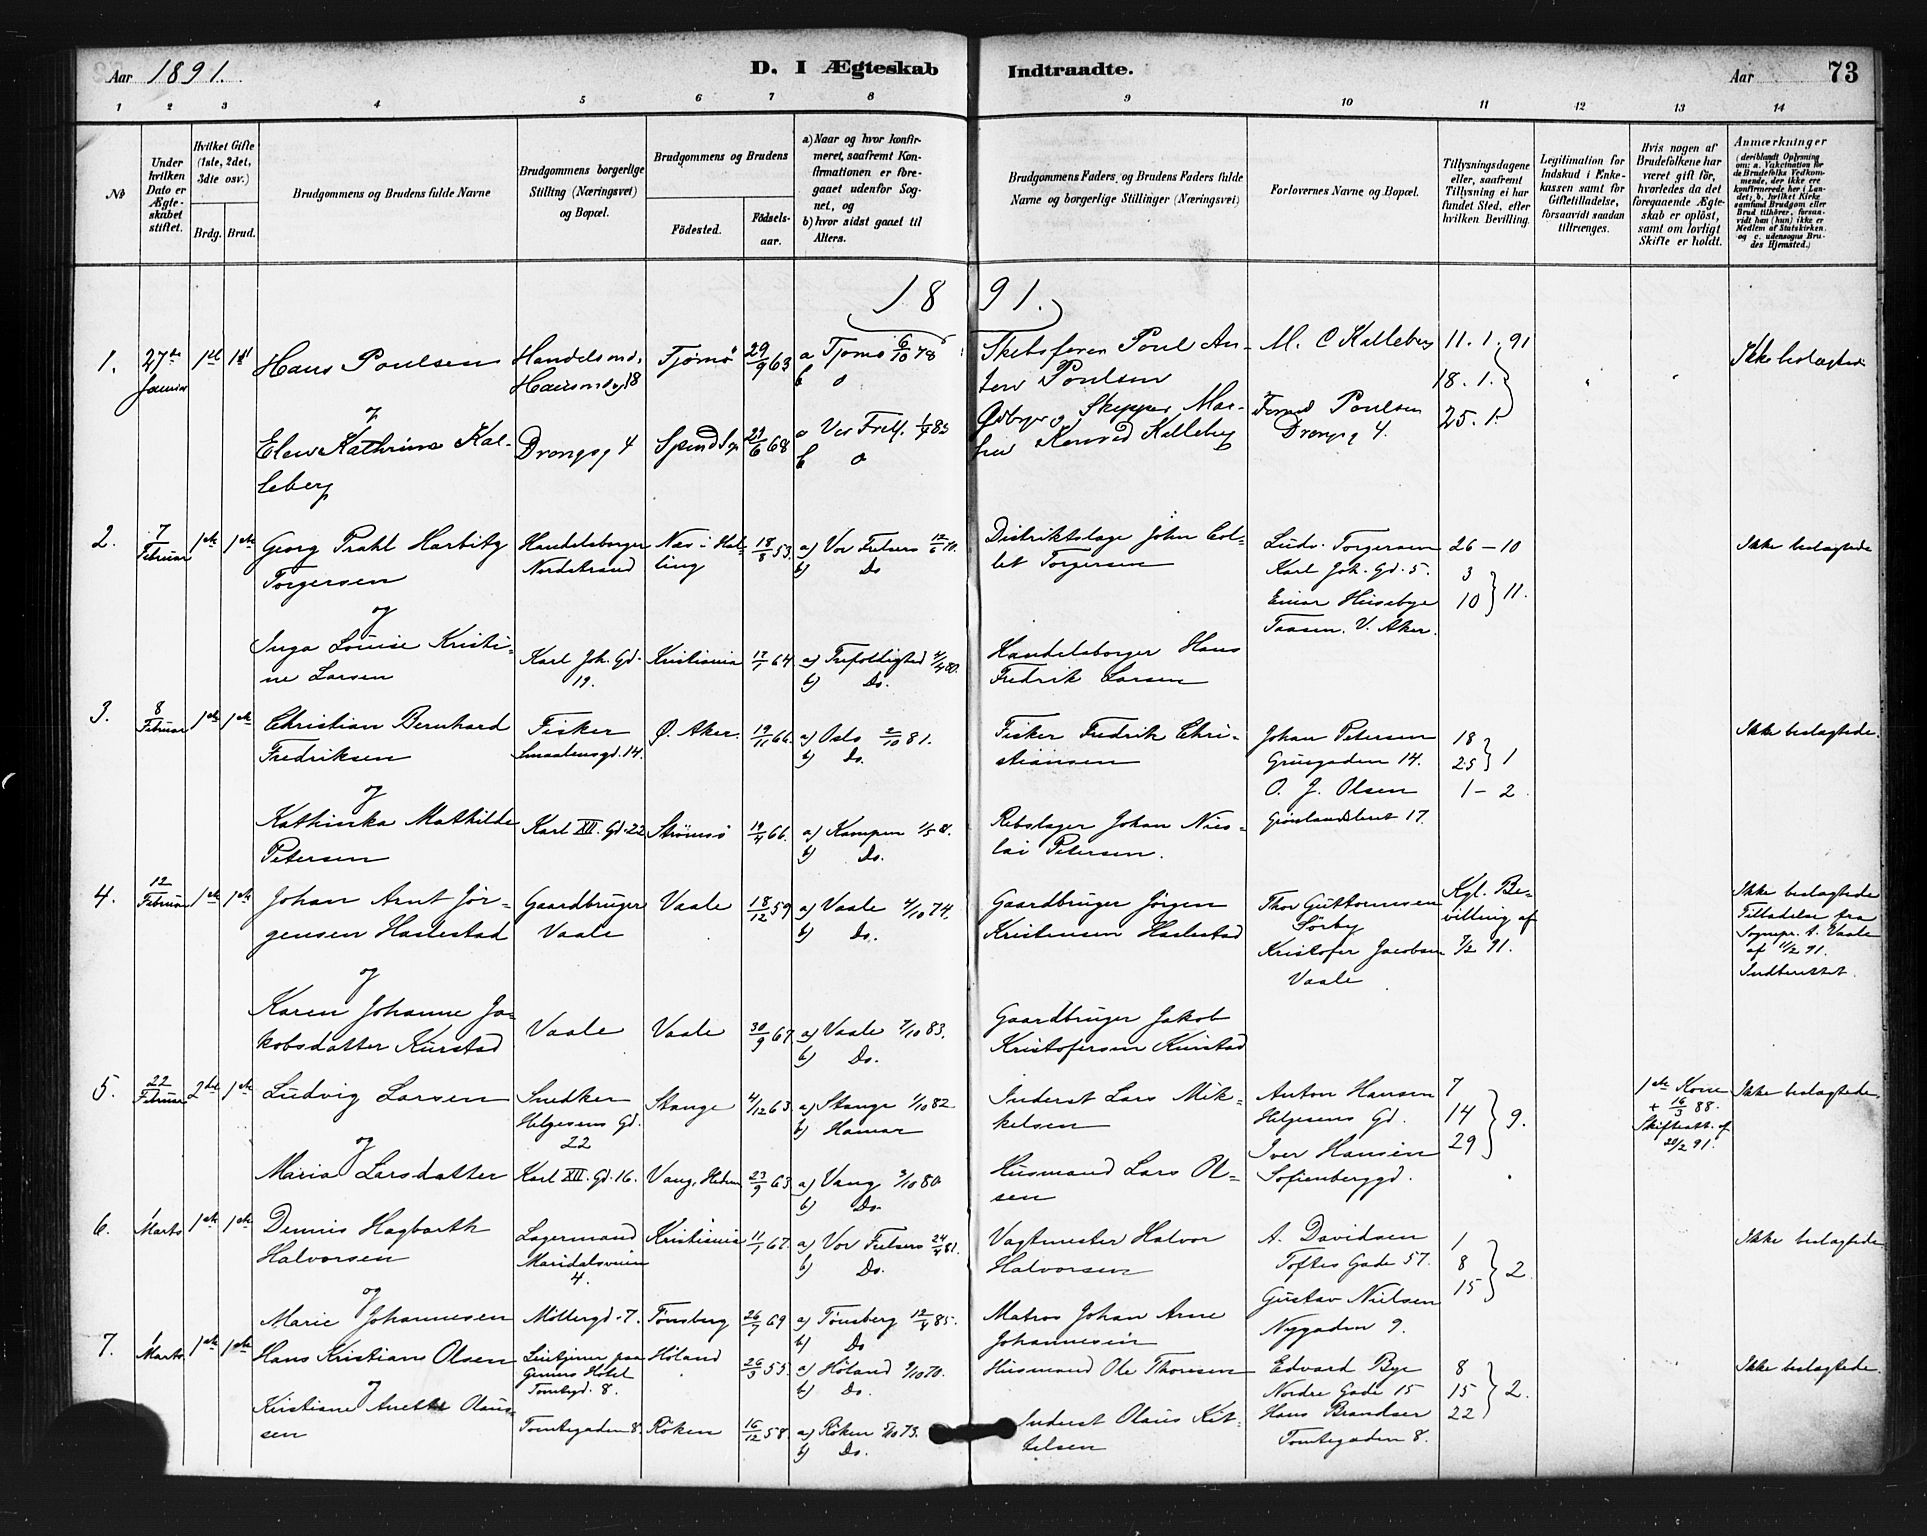 Aar 1891. D. I Ægteskab Indtraadte. Aar 73
1 2 3 4 5 6 7 8 9 10 11 12 13 14
No
Under hvilken Dato er Ægteskabet stiftet.
Hvilket Gifte (1ste, 2det, 3die osv.)
Brdg. Brud.
Brudgommens og Brudens fulde Navne
Brudgommens borgerlige Stilling (Næringsvei) og Bopæl.
Brudgommens og Brudens
Födested.
Födselsaar.
a) Naar og hvor konfirmeret, saafremt Konfirmationen er foregaaet udenfor Sognet, og
b) hvor sidst gaaet til Alters.
Brudgommens Faders, og Brudens Faders fulde Navne og borgerlige Stillinger (Næringsvei)
Forlovernes Navne og Bopæl.
Tillysningsdagene eller, saafremt Tillysning ei har fundet Sted, efter hvilken Bevilling.
Legitimation for Indskud i Enkekassen samt for Giftetilladelse, forsaavidt saadan tiltrænges.
Hvis nogen af Brudefolkene har været gift för, hvorledes da det foregaaende Ægteskab er oplöst, samt om lovligt Skifte er holdt.
Anmærkninger
(deriblandt Oplysning om: a. Vakcination for de Brudefolks Vedkommende, der ikke ere konfirmerede her i Landet; b. hvilket Kirkesamfund Brudgom eller Brud tilhörer, forsaavidt han (hun) ikke er Medlem af Statskirken, og c. udensogns Brudes Hjemsted.)
1891.
1. 27de Januar 1st 1st
Hans Poulsen
og
Elew Kathrine Kalleberg
Handelsmd. Hausmdsg. 18
Drongsg 4
Tjømø 29/9 63
23/6 68
a Tjømø 6/10 78
b o
a Vor Frels. 1/4 83
b o
Skibsfører Poul Anton Poulsen
Skipper Konrad Kalleberg
M. C Kalleberg
Poulsen
Drongsg 4.
11. 1. 91
18. 1.
25. 1.
Ikke beslægtede
2. 7 Februar 1ste 1ste
Georg Prahl Harbitz Torgersen
og
Inga Louise Kristine Larsen
Handelsborger Nordstrand
Karl Joh. Gd. 19.
Næs i Halling 18/8 53
Kristiania 12/1 64
a) Vor Frelsers 12/6 70.
b) Do
a) Trefoldighed 4/4 80.
b) Do.
Distriktslæge John Collet Torgersen
Handelsborger Hans Fredrik Larsen
Ludv. Torgersen
Karl Joh. Gd. 5.
Einar Husebye
Taasen. V. Aker.
26 – 10
3
10 } 11.
Ikke beslægtede
3. 8 Februar 1ste 1ste
Christian Bernhard Fredriksen
og
Kathinka Mathilde Petersen
Fisker
Smaalensgd. 14.
Karl XII. Gd. 22
Ø. Aker. 19/11 66.
Strømsø 19/4 66.
a) Oslo 2/10 81.
b) Do.
a) Kampen 1/5 81.
b) Do.
Fisker Fredrik Christiansen
Rebslager Johan Nicolai Petersen.
Johan Petersen
Grusgaden 14.
O. J. Olsen
Grønlandsleret 17.
18
25 } 1
1 – 2
Ikke beslægtede.
4. 12 Februar 1ste 1ste
Johan Arnt Jørgensen Haslestad
og
Karen Johanne Jakobsdatter Kirstad
Gaardbruger Vaale
Vaale
Vaale 18/12 59
Vaale 30/9 67
a) Vaale 4/10 74.
b) Do.
a) Vaale 7/10 83.
b) Do.
Gaardbruger Jørgen Kristensen Haslestad
Gaardbruger Jakob Kristofersen Kirstad
Thor Guttormsen Sørby
Kristofer Jacobsen Vaale
Kgl. Bevilling af 7/2 91.
Ikke beslægtede
Tilladelse fra Sognepr. t. Vaale af 11/2 91.
Indberettet.
5. 22 Februar 2det 1ste
Ludvig Larsen
og
Maria Larsdatter
Snedker
Helgesens Gd. 22
Karl XII. Gd. 16.
Stange 4/12 63
Vang, Hedem 23/9 63
a) Stange 1/10 82
b) Hamar
a) Vang 3/10 80
b) Do
Inderst Lars Mikkelsen
Husmand Lars Olsen
Anton Hansen
Helgesens Gd.
Iver Hansen
Sofienberggd.
7
14
29 } 9.
1ste Kone + 16/3 88.
Skifteatt. af 20/2 91.
Ikke beslægtede
6. 1 Marts 1ste 1ste
Dennis Hagbarth Halvorsen
og
Marie Johannesen
Lagermand
Maridalsveien 4.
Møllergd. 7.
Kristiania 11/1 67.
Tønsberg 26/7 69
a) Vor Frelsers 24/4 81.
b) Do.
a) Tønsberg 12/4 85.
b) Do
Vagtmester Halvor Halvorsen
Matros Johan Arne Johannesen
A. Davidsen
Toftes Gade 57.
Gustav Nielsen
Nygaden 9.
1
8
15 } 2
Ikke beslægtede
7. 1 Marts 1ste 1ste
Hans Kristians Olsen
og
Kirstiane Anette Olaussen
Hotel
Tomtegd. 8.
Tomtegaden 8.
Høland 26/3 55
Röken 16/12 58
a) Høland 9/10 70.
b) Do.
a) Röken 5/10 73.
b) Do.
Husmand Ole Thoresen
Inderst Olaus Kittelsen
Edvard Bye
Nordre Gade 15
Hans Brandser
Tomtegaden 8.
8
15
22 } 2.
Ikke beslægtede.